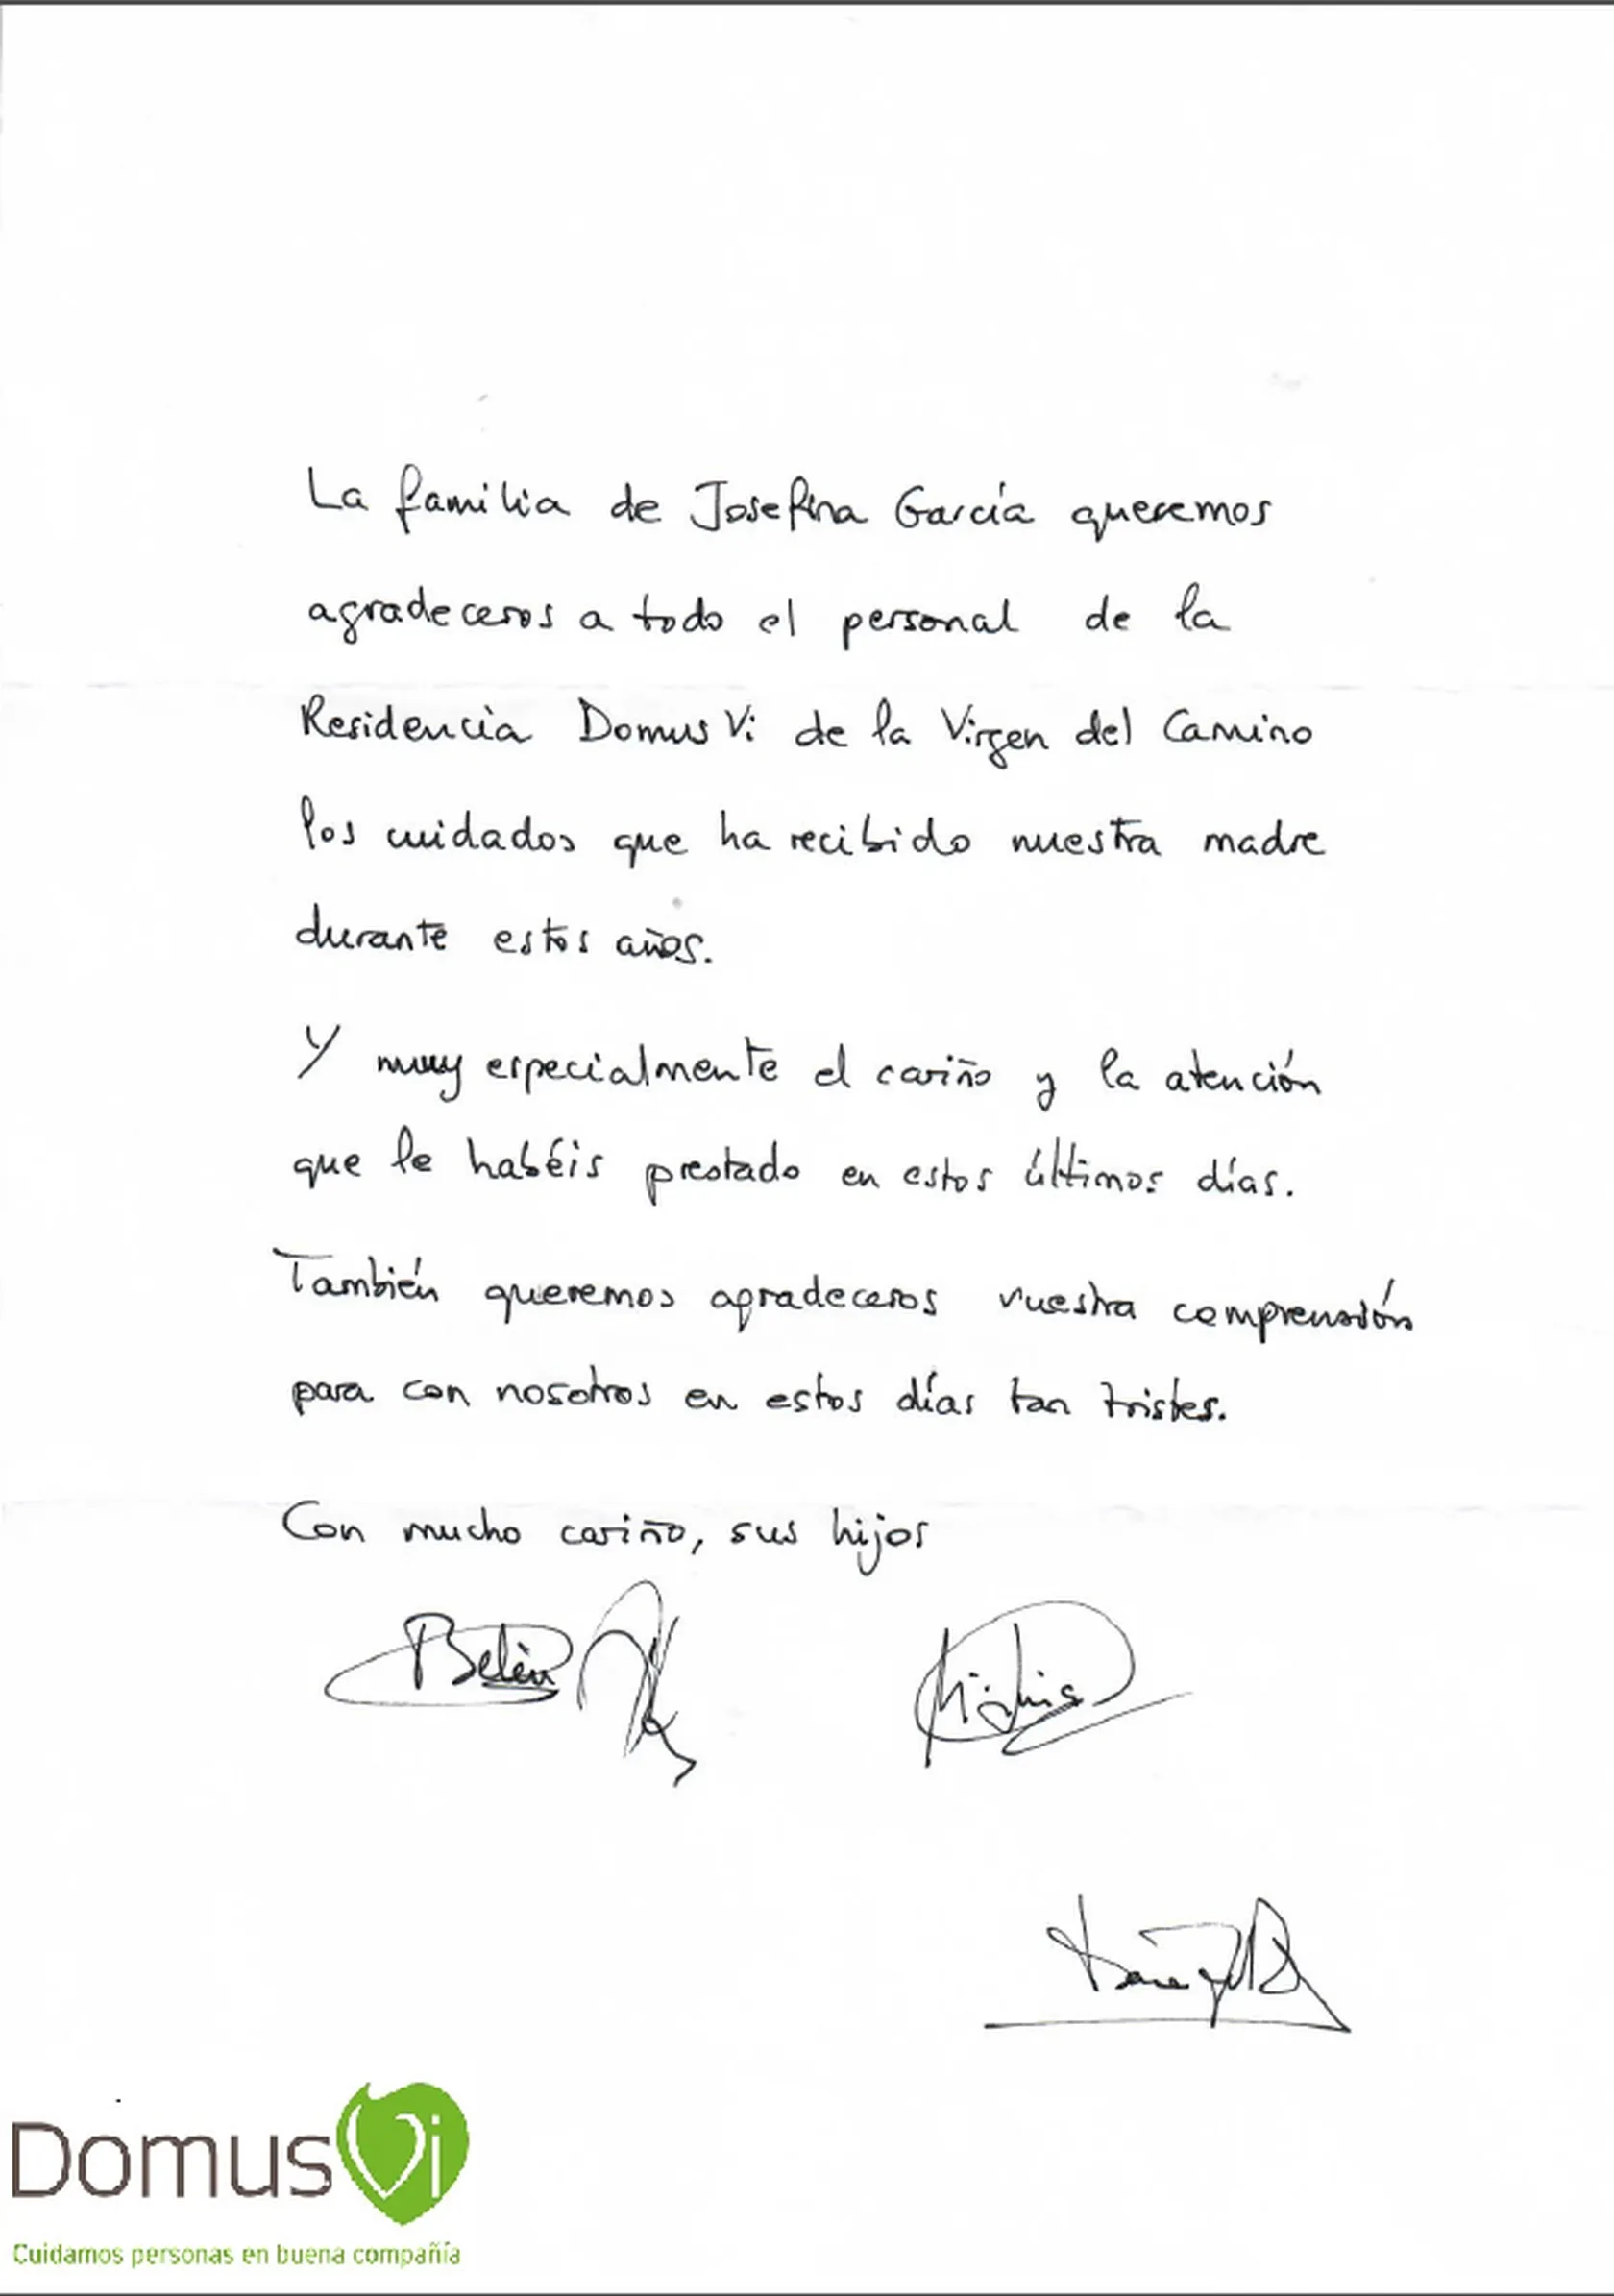 La familia de Josefina García queremos
agradeceros a todo el personal de la
Residencia DomusVi de la Virgen del Camino
los cuidados que ha recibido nuestra madre
durante estos años.
Y muy especialmente el cariño y la atención
que le habéis prestado en estos últimos días.
También queremos agradeceros vuestra comprensión
para con nosotros en estos días tan tristes.
Con mucho cariño, sus hijos
Belén
DomusVi
Cuidamos personas en buena compañía